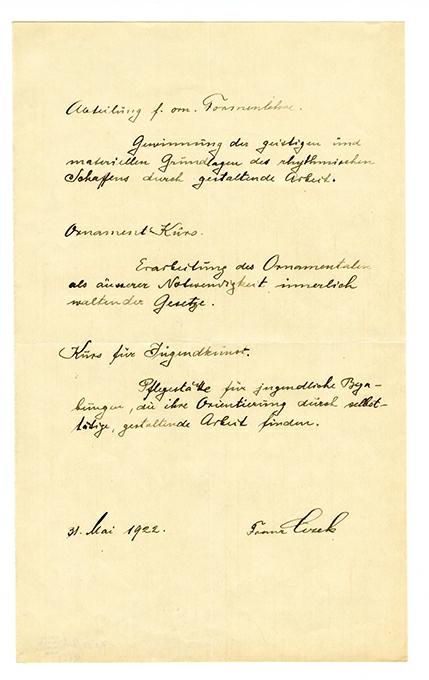 Abteilung f. orn. Formenlehre.
Gewinnung der geistigen und
materiellen Grundlagen des rhythmischen
Schaffens durch gestaltende Arbeit.
Ornament Kurs.
Erarbeitung des Ornamentalen
als äusserer Notwendigkeit innerlich
waltender Gesetze.
Kurs für Jugendkunst.
Pflegestätte für jugendliche Bega-
bungen, die ihre Orientierung durch selbst-
tätige, gestaltende Arbeit finden.
31. Mai 1922. Franz Cizek